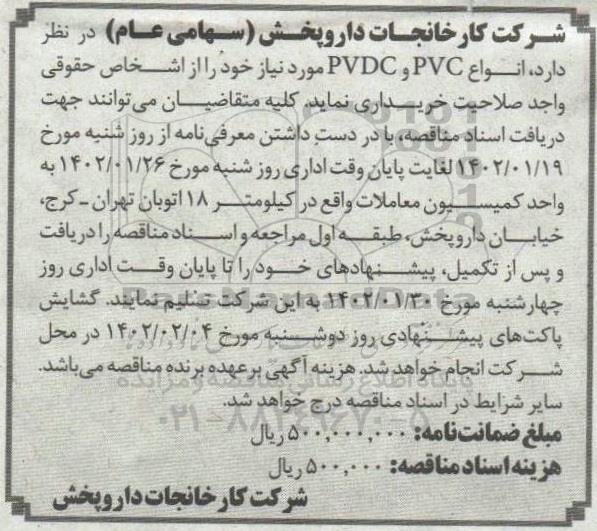 شرکت کارخانجات داروپخش (سهامی عام) در نظر
دارد، انواع PVC و PVDC مورد نیاز خود را از اشخاص حقوقی
واجد صلاحیت خریداری نماید. کلیه متقاضیان می‌توانند جهت
دریافت اسناد مناقصه، با در دست داشتن معرفی‌نامه از روز شنبه مورخ
۱۴۰۲/۰۱/۱۹ لغایت پایان وقت اداری روز شنبه مورخ ۱۴۰۲/۰۱/۲۶ به
واحد کمیسیون معاملات واقع در کیلومتر ۱۸ اتوبان تهران - کرج،
خیابان داروپخش، طبقه اول مراجعه و اسناد مناقصه را دریافت
و پس از تکمیل، پیشنهادهای خود را تا پایان وقت اداری روز
چهارشنبه مورخ ۱۴۰۲/۰۱/۳۰ به این شرکت تسلیم نمایند. گشایش
پاکت‌های پیشنهادی روز دوشنبه مورخ ۱۴۰۲/۰۲/۰۴ در محل
شرکت انجام خواهد شد. هزینه آگهی برعهده برنده مناقصه می‌باشد.
سایر شرایط در اسناد مناقصه درج خواهد شد.
مبلغ ضمانت‌نامه: ۵۰۰,۰۰۰,۰۰۰ ریال
هزینه اسناد مناقصه: ۵۰۰,۰۰۰ ریال
شرکت کارخانجات داروپخش
ParsNamadData
پایگاه اطلاع رسانی مناقصه و مزایده
۰۲۱-۸۸۳۴۹۶۷۰-۵